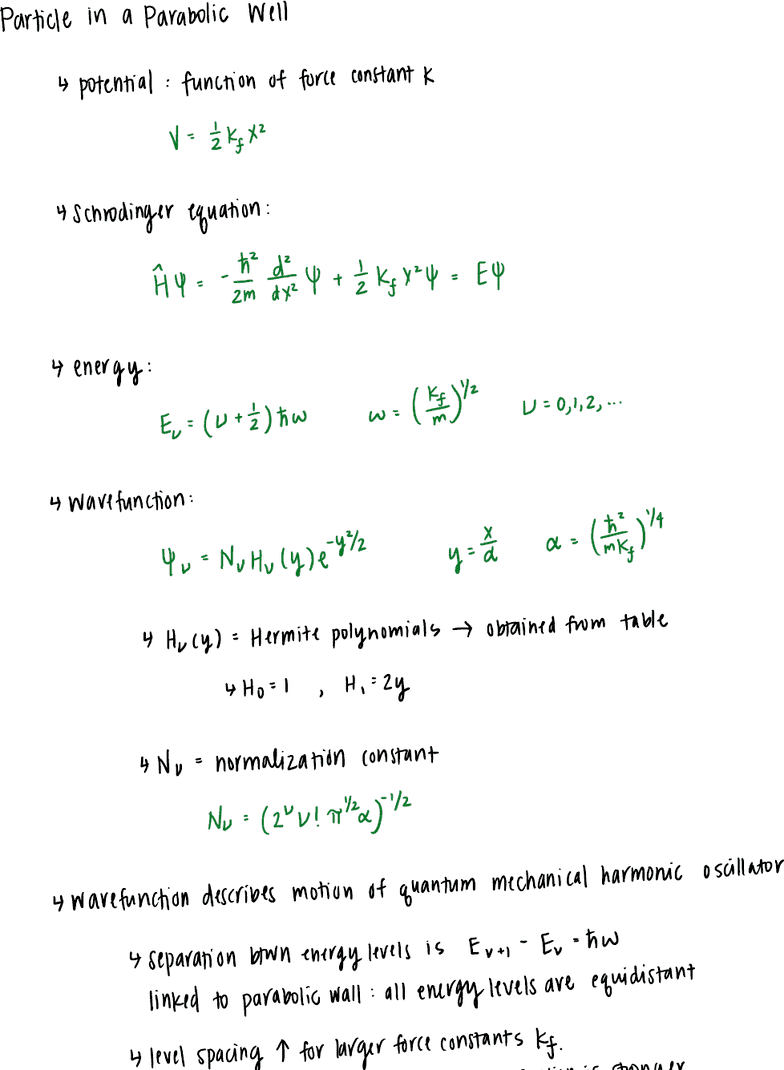 Particle in a Parabolic Well
↳ potential : function of force constant K
V = 1/2 K_f x²
↳ Schrodinger equation:
Ĥψ = -ħ²/2m d²/dx² ψ + 1/2 K_f x²ψ = Eψ
↳ energy:
E_ν = (ν + 1/2) ħω    ω = (K_f/m)^1/2    ν = 0,1,2, ...
↳ wavefunction:
ψ_ν = N_ν H_ν (y) e^-y²/2    y = x/α    α = (ħ²/mK_f)^1/4
↳ H_ν(y) = Hermite polynomials → obtained from table
↳ H₀ = 1 , H₁ = 2y
↳ N_ν = normalization constant
N_ν = (2^ν ν! π^1/2 α)^-1/2
↳ wavefunction describes motion of quantum mechanical harmonic oscillator
↳ separation btwn energy levels is E_ν+1 - E_ν = ħω
linked to parabolic wall : all energy levels are equidistant
↳ level spacing ↑ for larger force constants K_f.